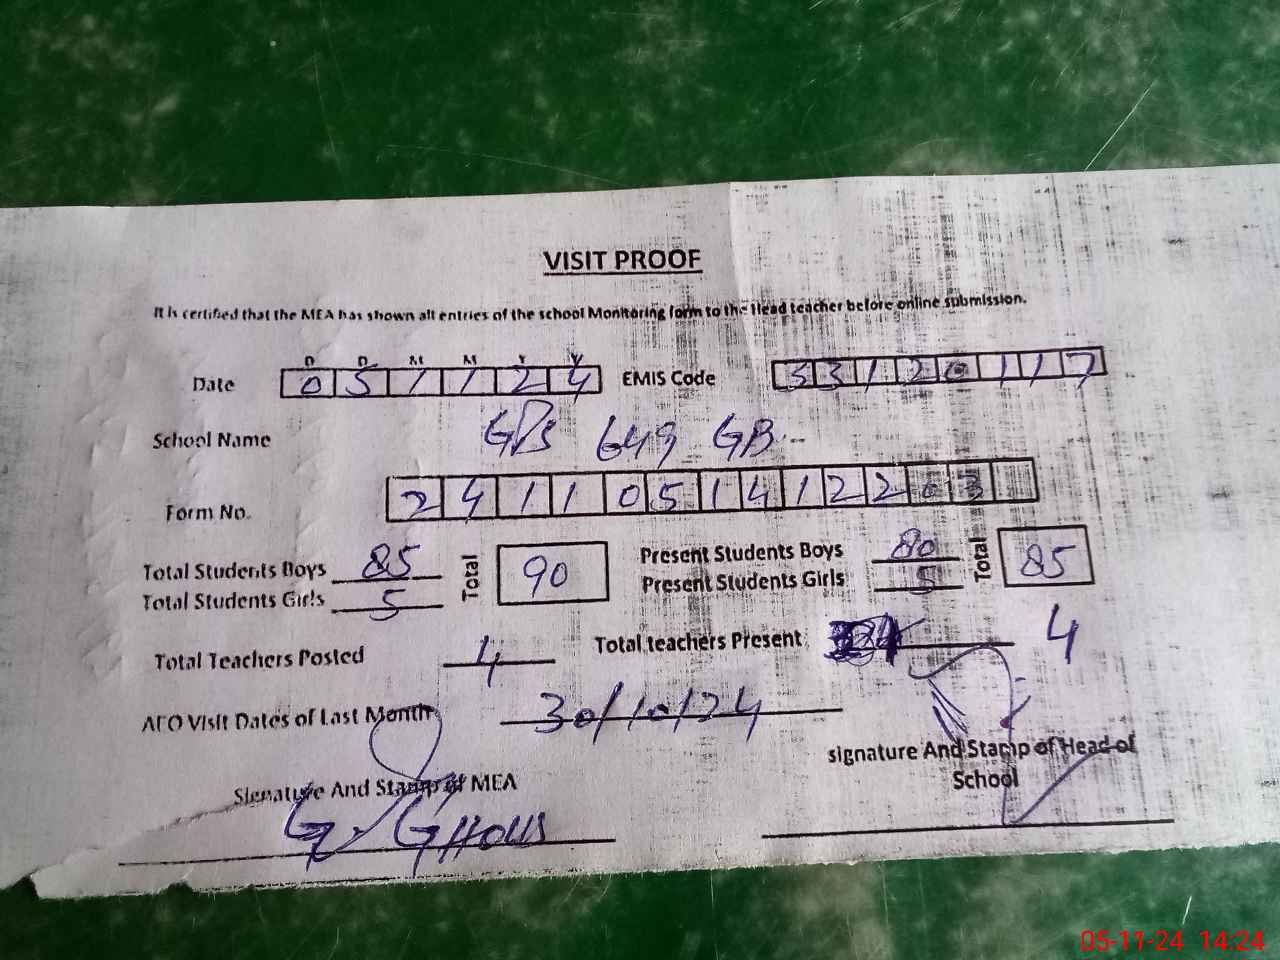 VISIT PROOF
It is certified that the MEA has shown all entries of the school Monitoring form to the Head teacher before online submission.
D D M M Y Y
Date 0 5 1 1 2 4 EMIS Code 3 3 1 2 0 1 1 7
School Name GPS 649 GB
Form No. 2 4 1 1 0 5 1 4 1 2 2 0 3
Total Students Boys 85 Total 90 Present Students Boys 80 Total 85
Total Students Girls 5 Present Students Girls 5
Total Teachers Posted 4 Total teachers Present 4
AEO Visit Dates of Last Month 30/10/24
Signature And Stamp of MEA signature And Stamp of Head of School
G. GHOUS
05-11-24 14:24